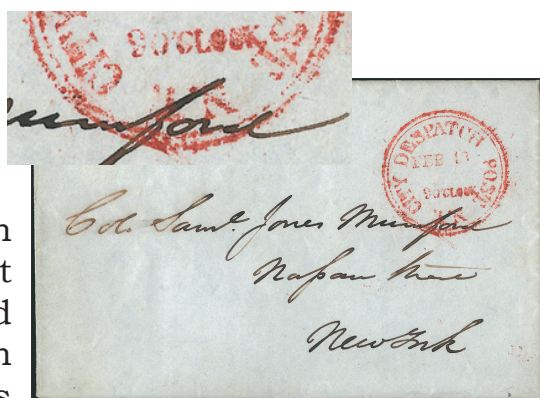 CITY
9 O'CLOCK
N.Y.
Mumford
CITY DESPATCH POST
FEB 13
9 O'CLOCK
Col. Saml. Jones Mumford
Nassau Street
New York